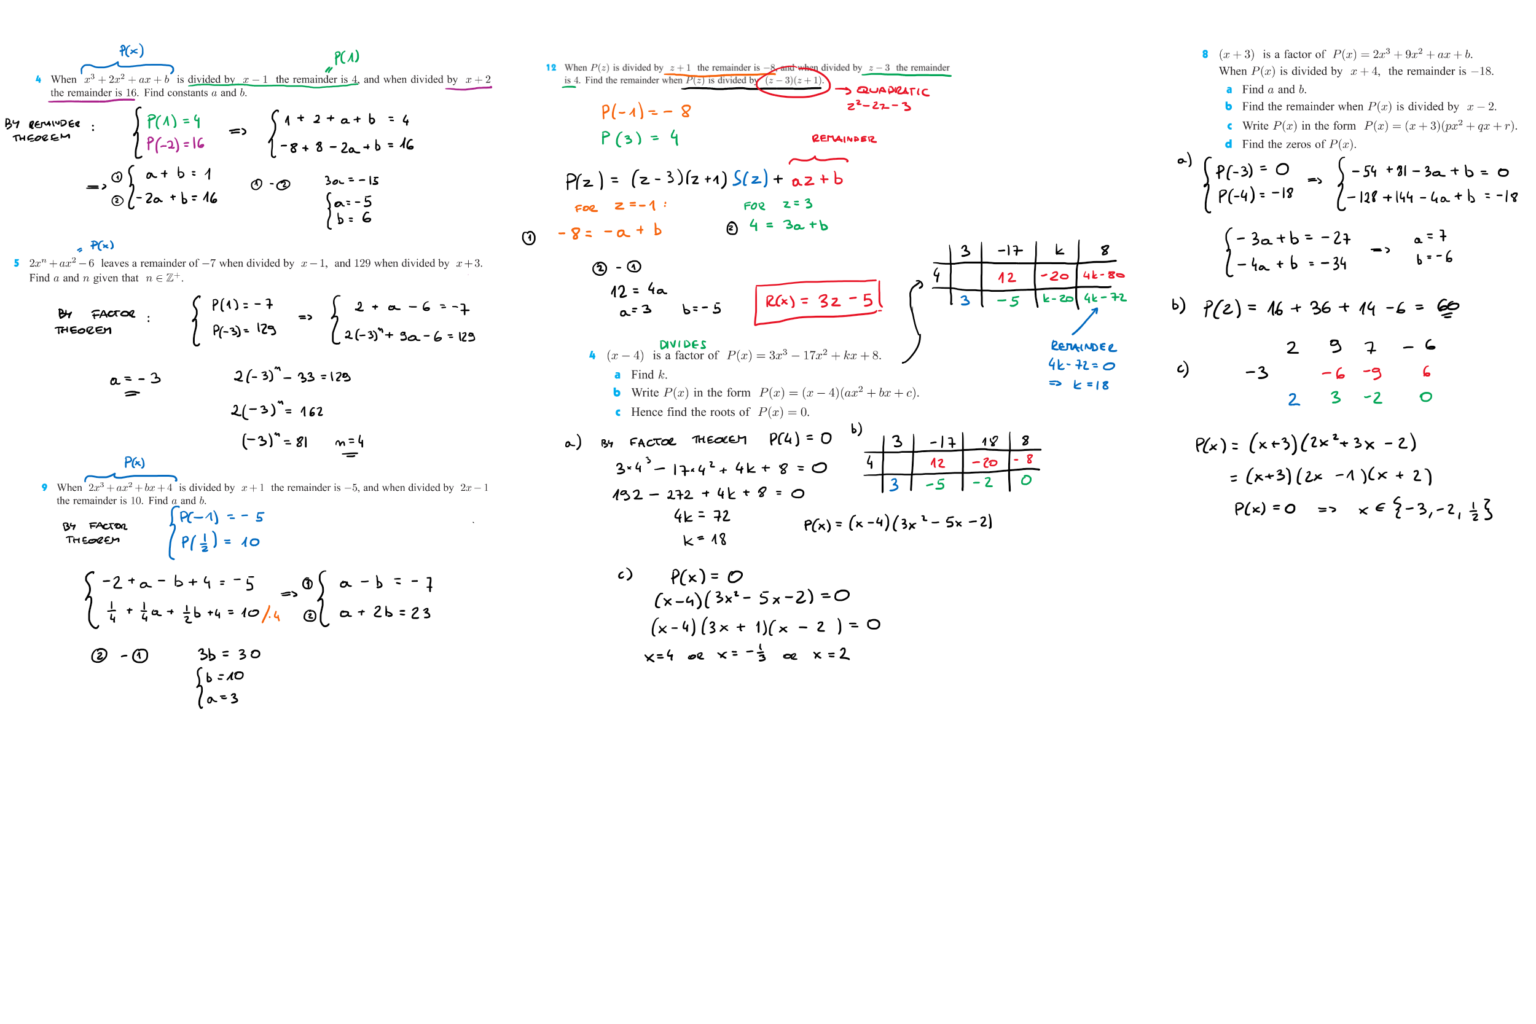 P(x)
P(1)
4 When x³ + 2x² + ax + b is divided by x − 1 the remainder is 4, and when divided by x + 2
the remainder is 16. Find constants a and b.
BY REMINDER THEOREM :
P(1) = 4 => 1 + 2 + a + b = 4
P(-2) = 16 -8 + 8 - 2a + b = 16
=> ① a + b = 1 ① - ② 3a = -15
② -2a + b = 16 a = -5
b = 6
P(x)
5 2xⁿ + ax² − 6 leaves a remainder of −7 when divided by x − 1, and 129 when divided by x + 3.
Find a and n given that n ∈ ℤ⁺.
BY FACTOR THEOREM :
P(1) = -7 => 2 + a - 6 = -7
P(-3) = 129 2(-3)ⁿ + 9a - 6 = 129
a = -3 2(-3)ⁿ - 33 = 129
2(-3)ⁿ = 162
(-3)ⁿ = 81 n = 4
P(x)
9 When 2x³ + ax² + bx + 4 is divided by x + 1 the remainder is −5, and when divided by 2x − 1
the remainder is 10. Find a and b.
BY FACTOR THEOREM
P(-1) = -5
P(½) = 10
-2 + a - b + 4 = -5 => ① a - b = -7
¼ + ¼a + ½b + 4 = 10 /·4 ② a + 2b = 23
② - ① 3b = 30
b = 10
a = 3
12 When P(z) is divided by z + 1 the remainder is −8, and when divided by z − 3 the remainder
is 4. Find the remainder when P(z) is divided by (z − 3)(z + 1).
→ QUADRATIC
z² - 2z - 3
P(-1) = -8
P(3) = 4
REMAINDER
P(z) = (z-3)(z+1) S(z) + az + b
FOR z = -1 : FOR z = 3
① -8 = -a + b ② 4 = 3a + b
② - ①
12 = 4a
a = 3 b = -5
R(x) = 3z - 5
3 -17 k 8
4 12 -20 4k-80
3 -5 k-20 4k-72
REMAINDER
4k - 72 = 0
=> k = 18
DIVIDES
4 (x − 4) is a factor of P(x) = 3x³ − 17x² + kx + 8.
a Find k.
b Write P(x) in the form P(x) = (x − 4)(ax² + bx + c).
c Hence find the roots of P(x) = 0.
a) BY FACTOR THEOREM P(4) = 0
3·4³ - 17·4² + 4k + 8 = 0
192 - 272 + 4k + 8 = 0
4k = 72
k = 18
b)
3 -17 18 8
4 12 -20 -8
3 -5 -2 0
P(x) = (x-4)(3x² - 5x - 2)
c) P(x) = 0
(x-4)(3x² - 5x - 2) = 0
(x-4)(3x + 1)(x - 2) = 0
x = 4 or x = -⅓ or x = 2
8 (x + 3) is a factor of P(x) = 2x³ + 9x² + ax + b.
When P(x) is divided by x + 4, the remainder is −18.
a Find a and b.
b Find the remainder when P(x) is divided by x − 2.
c Write P(x) in the form P(x) = (x + 3)(px² + qx + r).
d Find the zeros of P(x).
a) P(-3) = 0 => -54 + 81 - 3a + b = 0
P(-4) = -18 -128 + 144 - 4a + b = -18
-3a + b = -27 => a = 7
-4a + b = -34 b = -6
b) P(2) = 16 + 36 + 14 - 6 = 60
2 9 7 -6
c) -3 -6 -9 6
2 3 -2 0
P(x) = (x+3)(2x² + 3x - 2)
= (x+3)(2x - 1)(x + 2)
P(x) = 0 => x ∈ {-3, -2, ½}